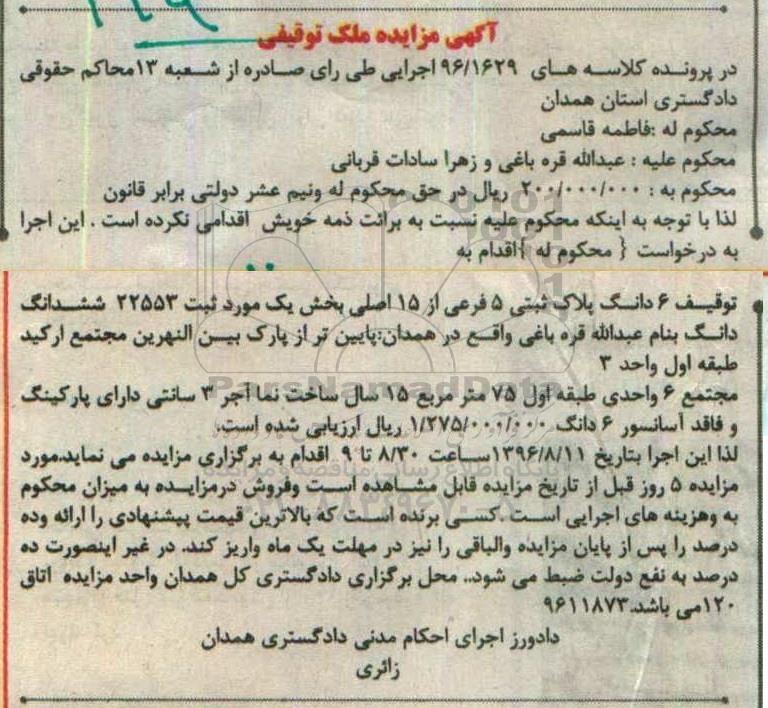 آگهی مزایده ملک توقیفی
در پرونده کلاسه های ۹۶/۱۶۲۹ اجرایی طی رای صادره از شعبه ۱۳محاکم حقوقی
دادگستری استان همدان
محکوم له :فاطمه قاسمی
محکوم علیه : عبدالله قره باغی و زهرا سادات قربانی
محکوم به : ۲۰۰/۰۰۰/۰۰۰ ریال در حق محکوم له ونیم عشر دولتی برابر قانون
لذا با توجه به اینکه محکوم علیه نسبت به برائت ذمه خویش اقدامی نکرده است . این اجرا
به درخواست { محکوم له }اقدام به
توقیف ۶ دانگ پلاک ثبتی ۵ فرعی از ۱۵ اصلی بخش یک مورد ثبت ۲۲۵۵۳ ششدانگ
دانگ بنام عبدالله قره باغی واقع در همدان:پایین تر از پارک بین النهرین مجتمع ارکید
طبقه اول واحد ۳
مجتمع ۶ واحدی طبقه اول ۷۵ متر مربع ۱۵ سال ساخت نما آجر ۳ سانتی دارای پارکینگ
و فاقد آسانسور ۶ دانگ ۱/۲۷۵/۰۰۰/۰۰۰ ریال ارزیابی شده است.
لذا این اجرا بتاریخ ۱۳۹۶/۸/۱۱ساعت ۸/۳۰ تا ۹ اقدام به برگزاری مزایده می نماید.مورد
مزایده ۵ روز قبل از تاریخ مزایده قابل مشاهده است وفروش درمزایده به میزان محکوم
به وهزینه های اجرایی است .کسی برنده است که بالاترین قیمت پیشنهادی را ارائه وده
درصد را پس از پایان مزایده والباقی را نیز در مهلت یک ماه واریز کند. در غیر اینصورت ده
درصد به نفع دولت ضبط می شود.. محل برگزاری دادگستری کل همدان واحد مزایده اتاق
۱۲۰می باشد.۹۶۱۱۸۷۳
دادورز اجرای احکام مدنی دادگستری همدان
زائری
ParsNamadData